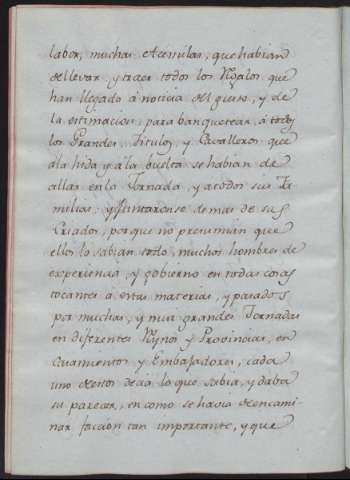 labor, muchas Acemilas, que habian
de llevar, y traer todos los Regalos que
han llegado à noticia del gusto, y de
la estimacion, para banquetear, à todos
los Grandes, Titulos, y Cavalleros que
à la hida, y à la buelta se habian de
allar en la Jornada, y a todos sus Fa
milias; y Juntaronse demas de sus
Criados, por que no presumian que
ellos lo sabian todo, muchos hombres de
experiencia, y gobierno en todas cosas
tocantes à estas materias, y pasados
por muchas, y muy grandes Jornadas
en diferentes Reynos y Provincias, en
Casamientos y Embajadores, cada
uno de estos decia lo que sabia, y daba
su parecer, en como se havia de encami-
nar faccion tan importante, y que